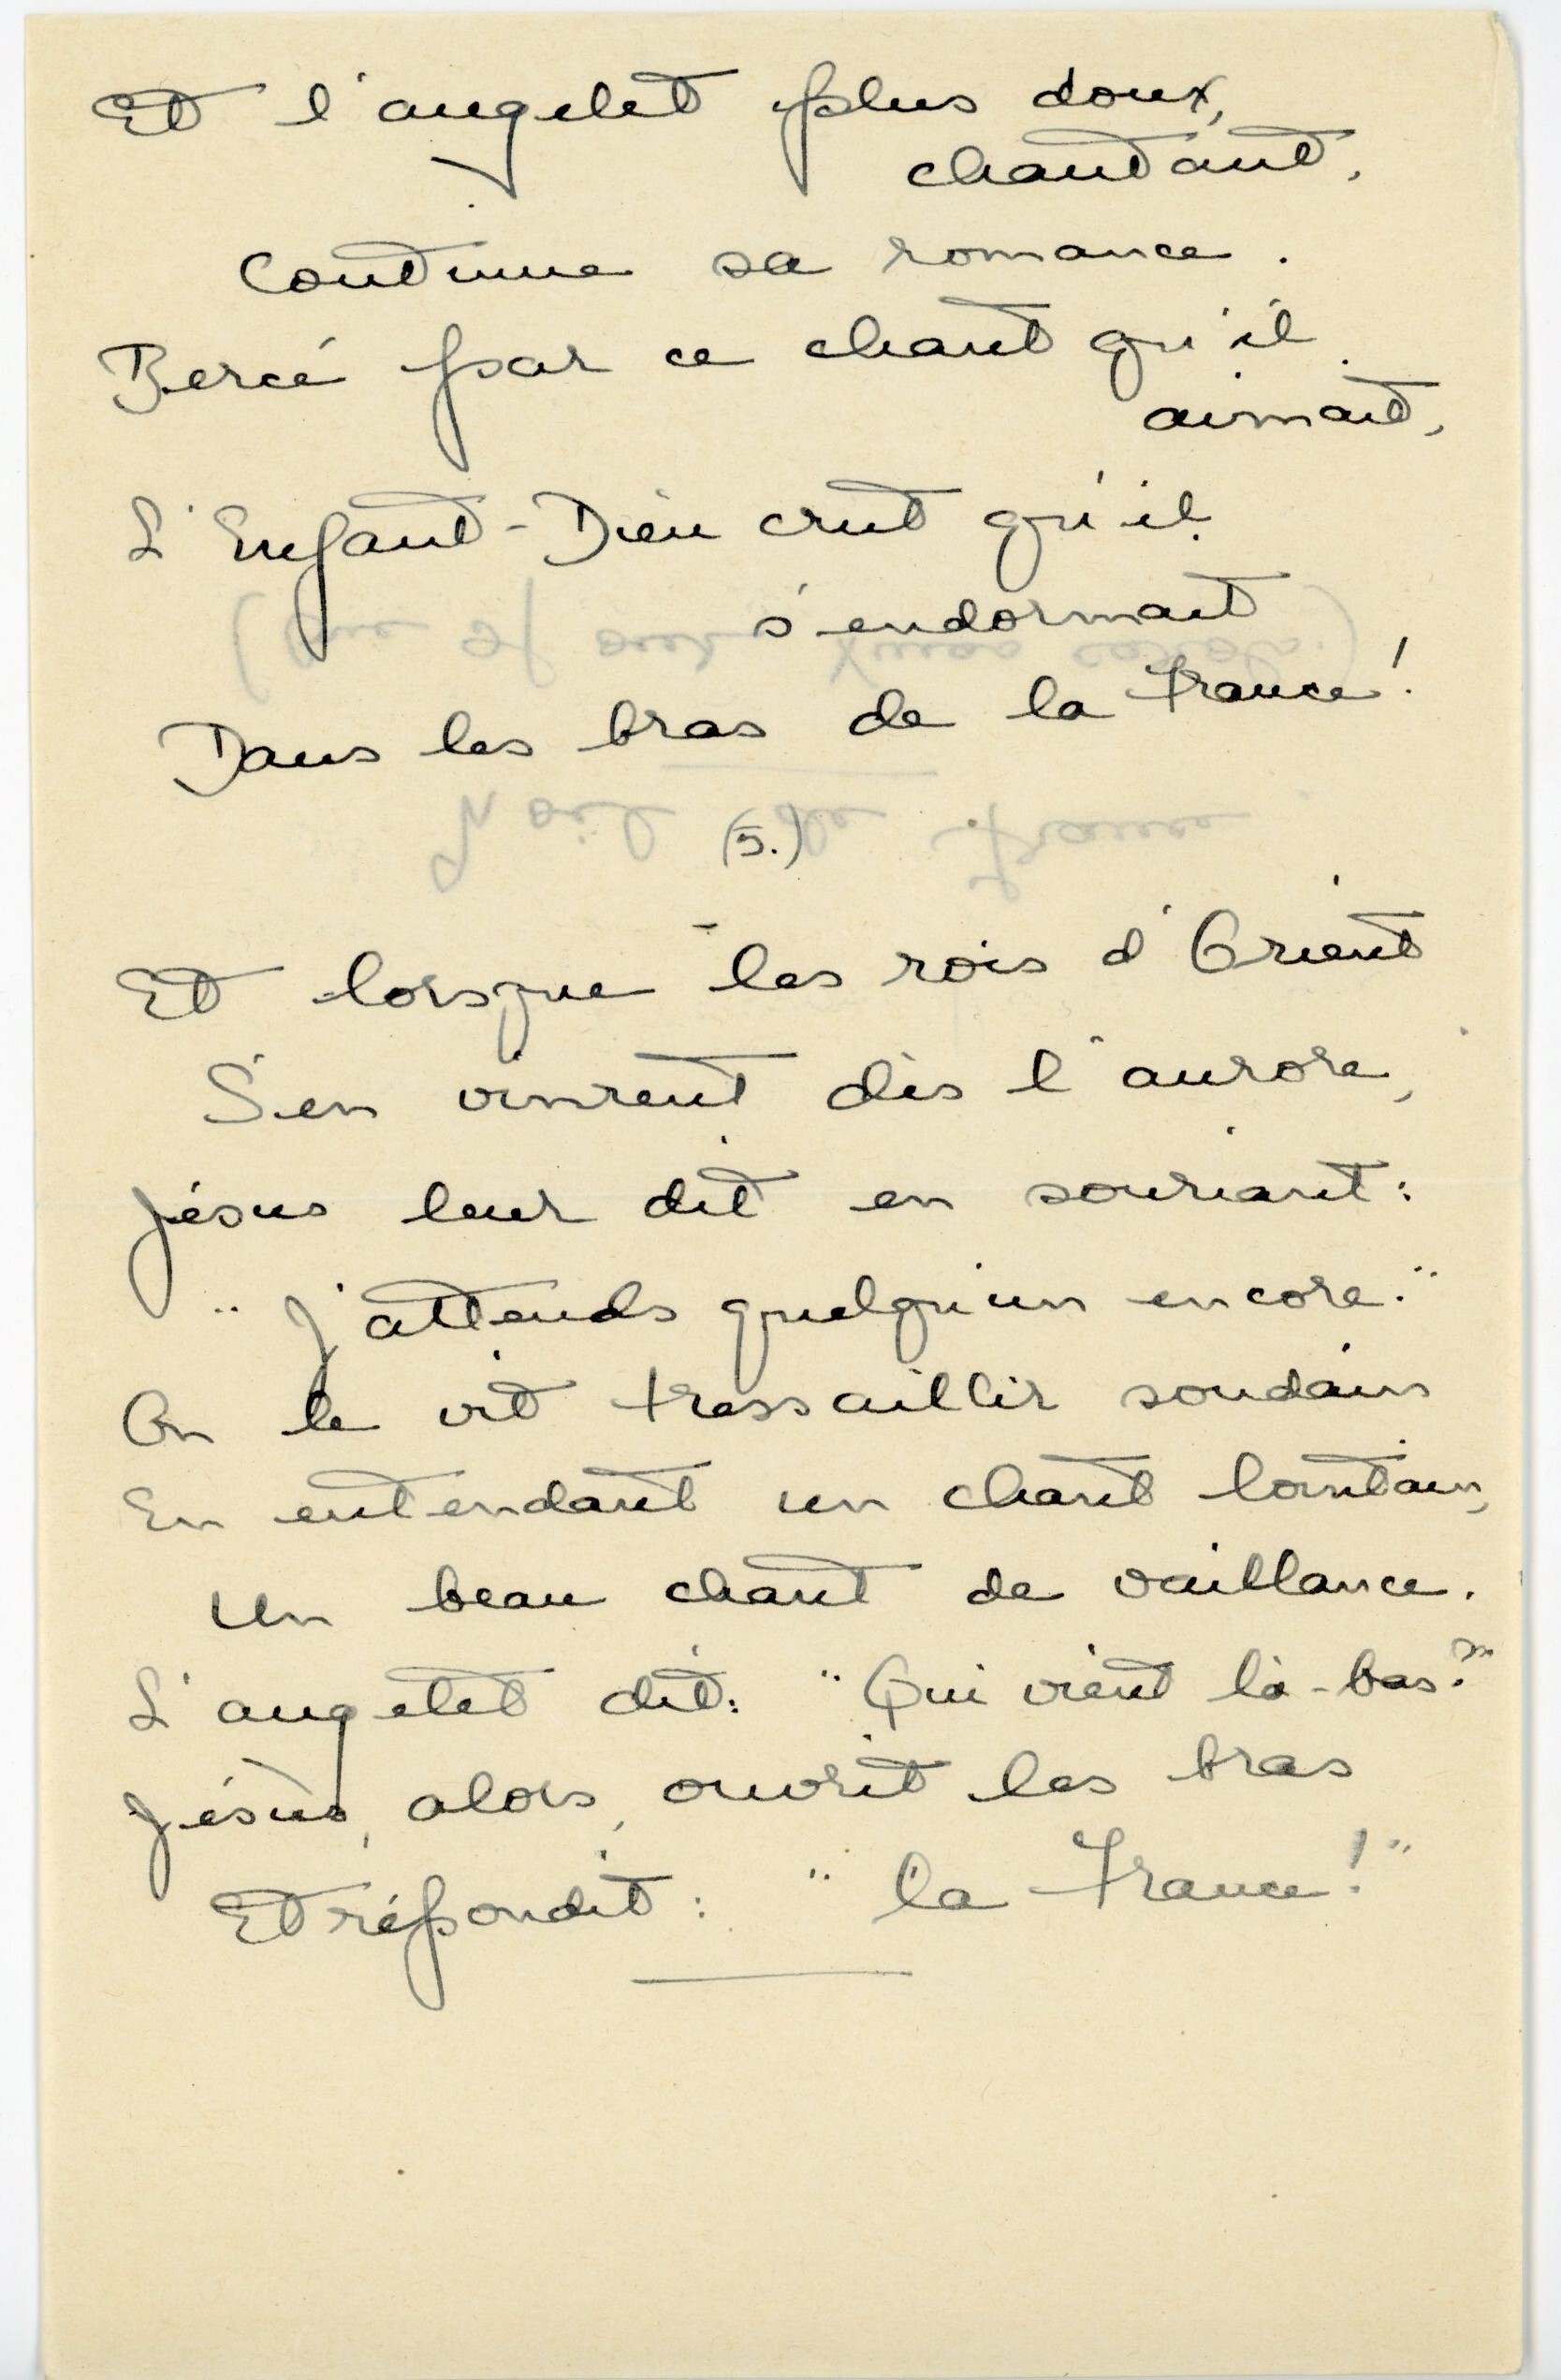 Et l'angelet plus doux,
chantant,
Continue sa romance.
Bercé par ce chant qu'il
aimait,
L'Enfant-Dieu crut qu'il
s'endormait
Dans les bras de la France!
(5.)
Et lorsque les rois d'Orient
S'en vinrent dès l'aurore,
Jésus leur dit en souriant:
"J'attends quelqu'un encore."
On le vit tressaillir soudain
En entendant un chant lointain,
Un beau chant de vaillance.
L'angelet dit: "Qui vient là-bas?"
Jésus, alors, ouvrit les bras
Et répondit: "la France!"